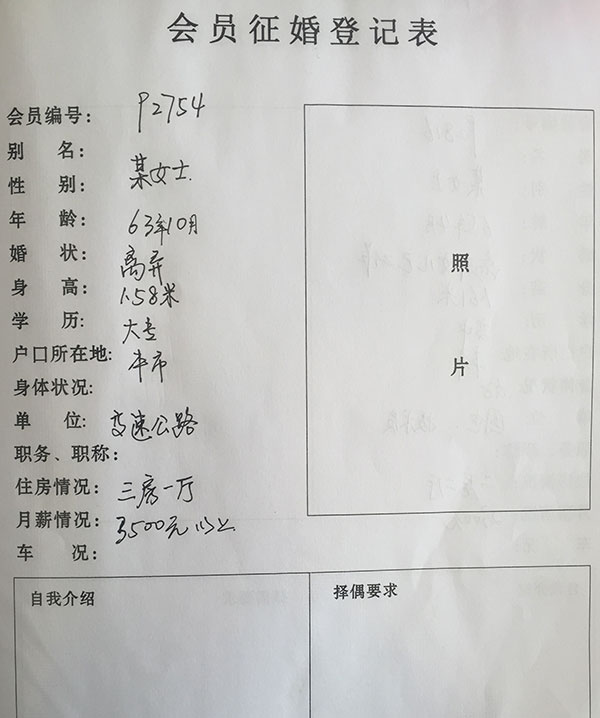 会员征婚登记表
会员编号: P2754
别 名:
性 别: 某女士.
年 龄: 63年10月
婚 状: 离弃
身 高: 1.58米
学 历: 大专
户口所在地: 本市
身体状况:
单 位: 变速公路
职务、职称:
住房情况: 三房一厅
月薪情况: 3500元以上
车 况:
照
片
自我介绍
择偶要求